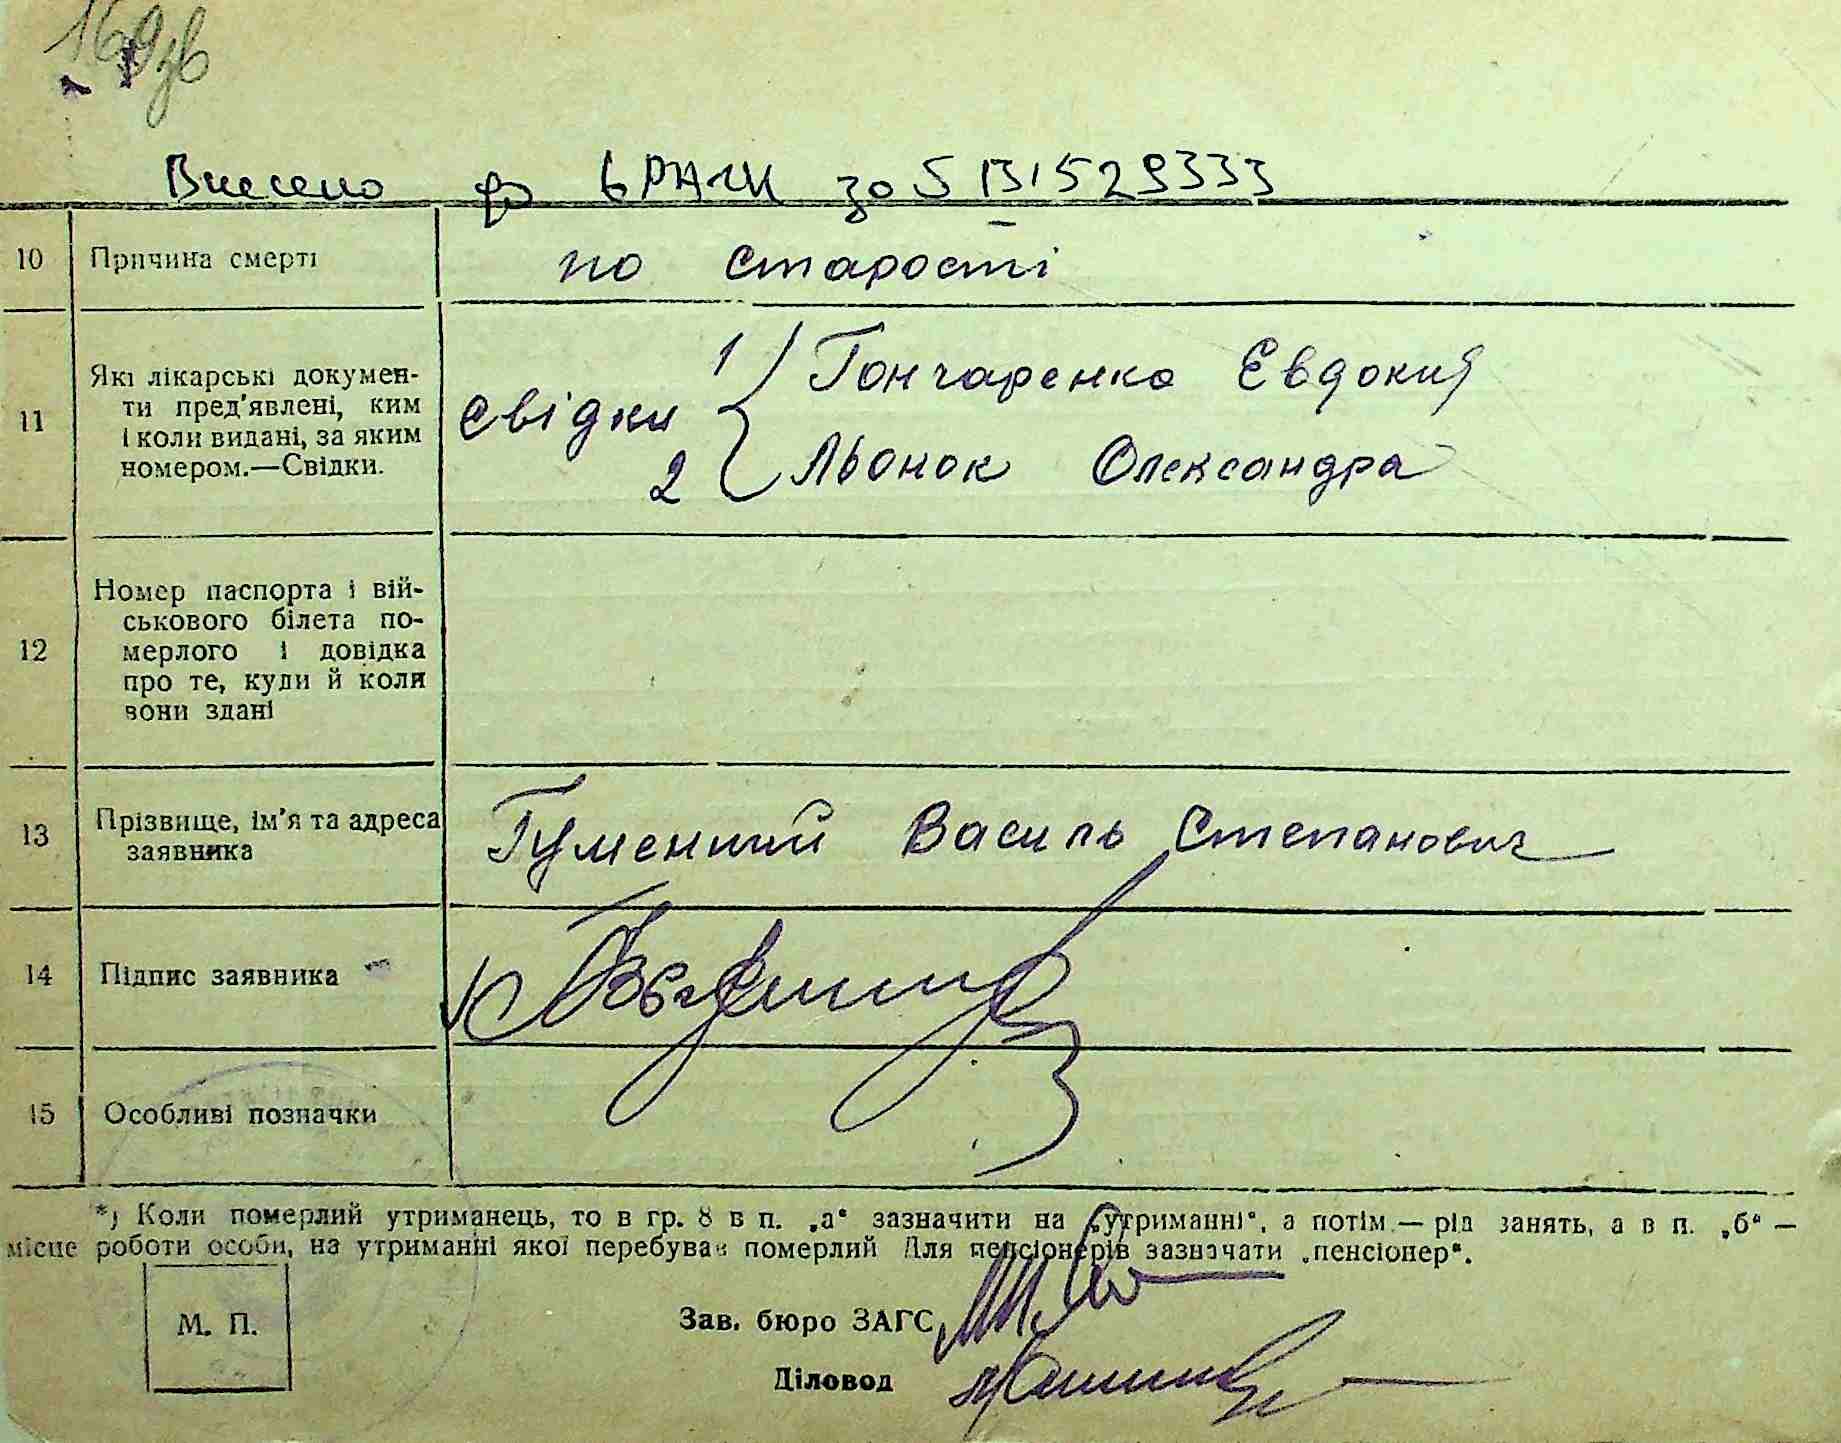 169зв
Внесено до ЄРАЦК за № 529333
10 Причина смерті по старості
11 Які лікарські докумен-
ти пред'явлені, ким
і коли видані, за яким
номером.—Свідки.
свідки
1) Гончаренко Євдокия
2 Льонок Олександра
12 Номер паспорта і вій-
ськового білета по-
мерлого і довідка
про те, куди й коли
вони здані
13 Прізвище, ім'я та адреса
заявника
Гуменний Василь Степанович
14 Підпис заявника
15 Особливі позначки
*) Коли померлий утриманець, то в гр. 8 в п. „а“ зазначити на „утриманні“, а потім — рід занять, а в п. „б“ —
місце роботи особи, на утриманні якої перебував померлий Для пенсіонерів зазначати „пенсіонер“.
М. П.
Зав. бюро ЗАГС
Діловод